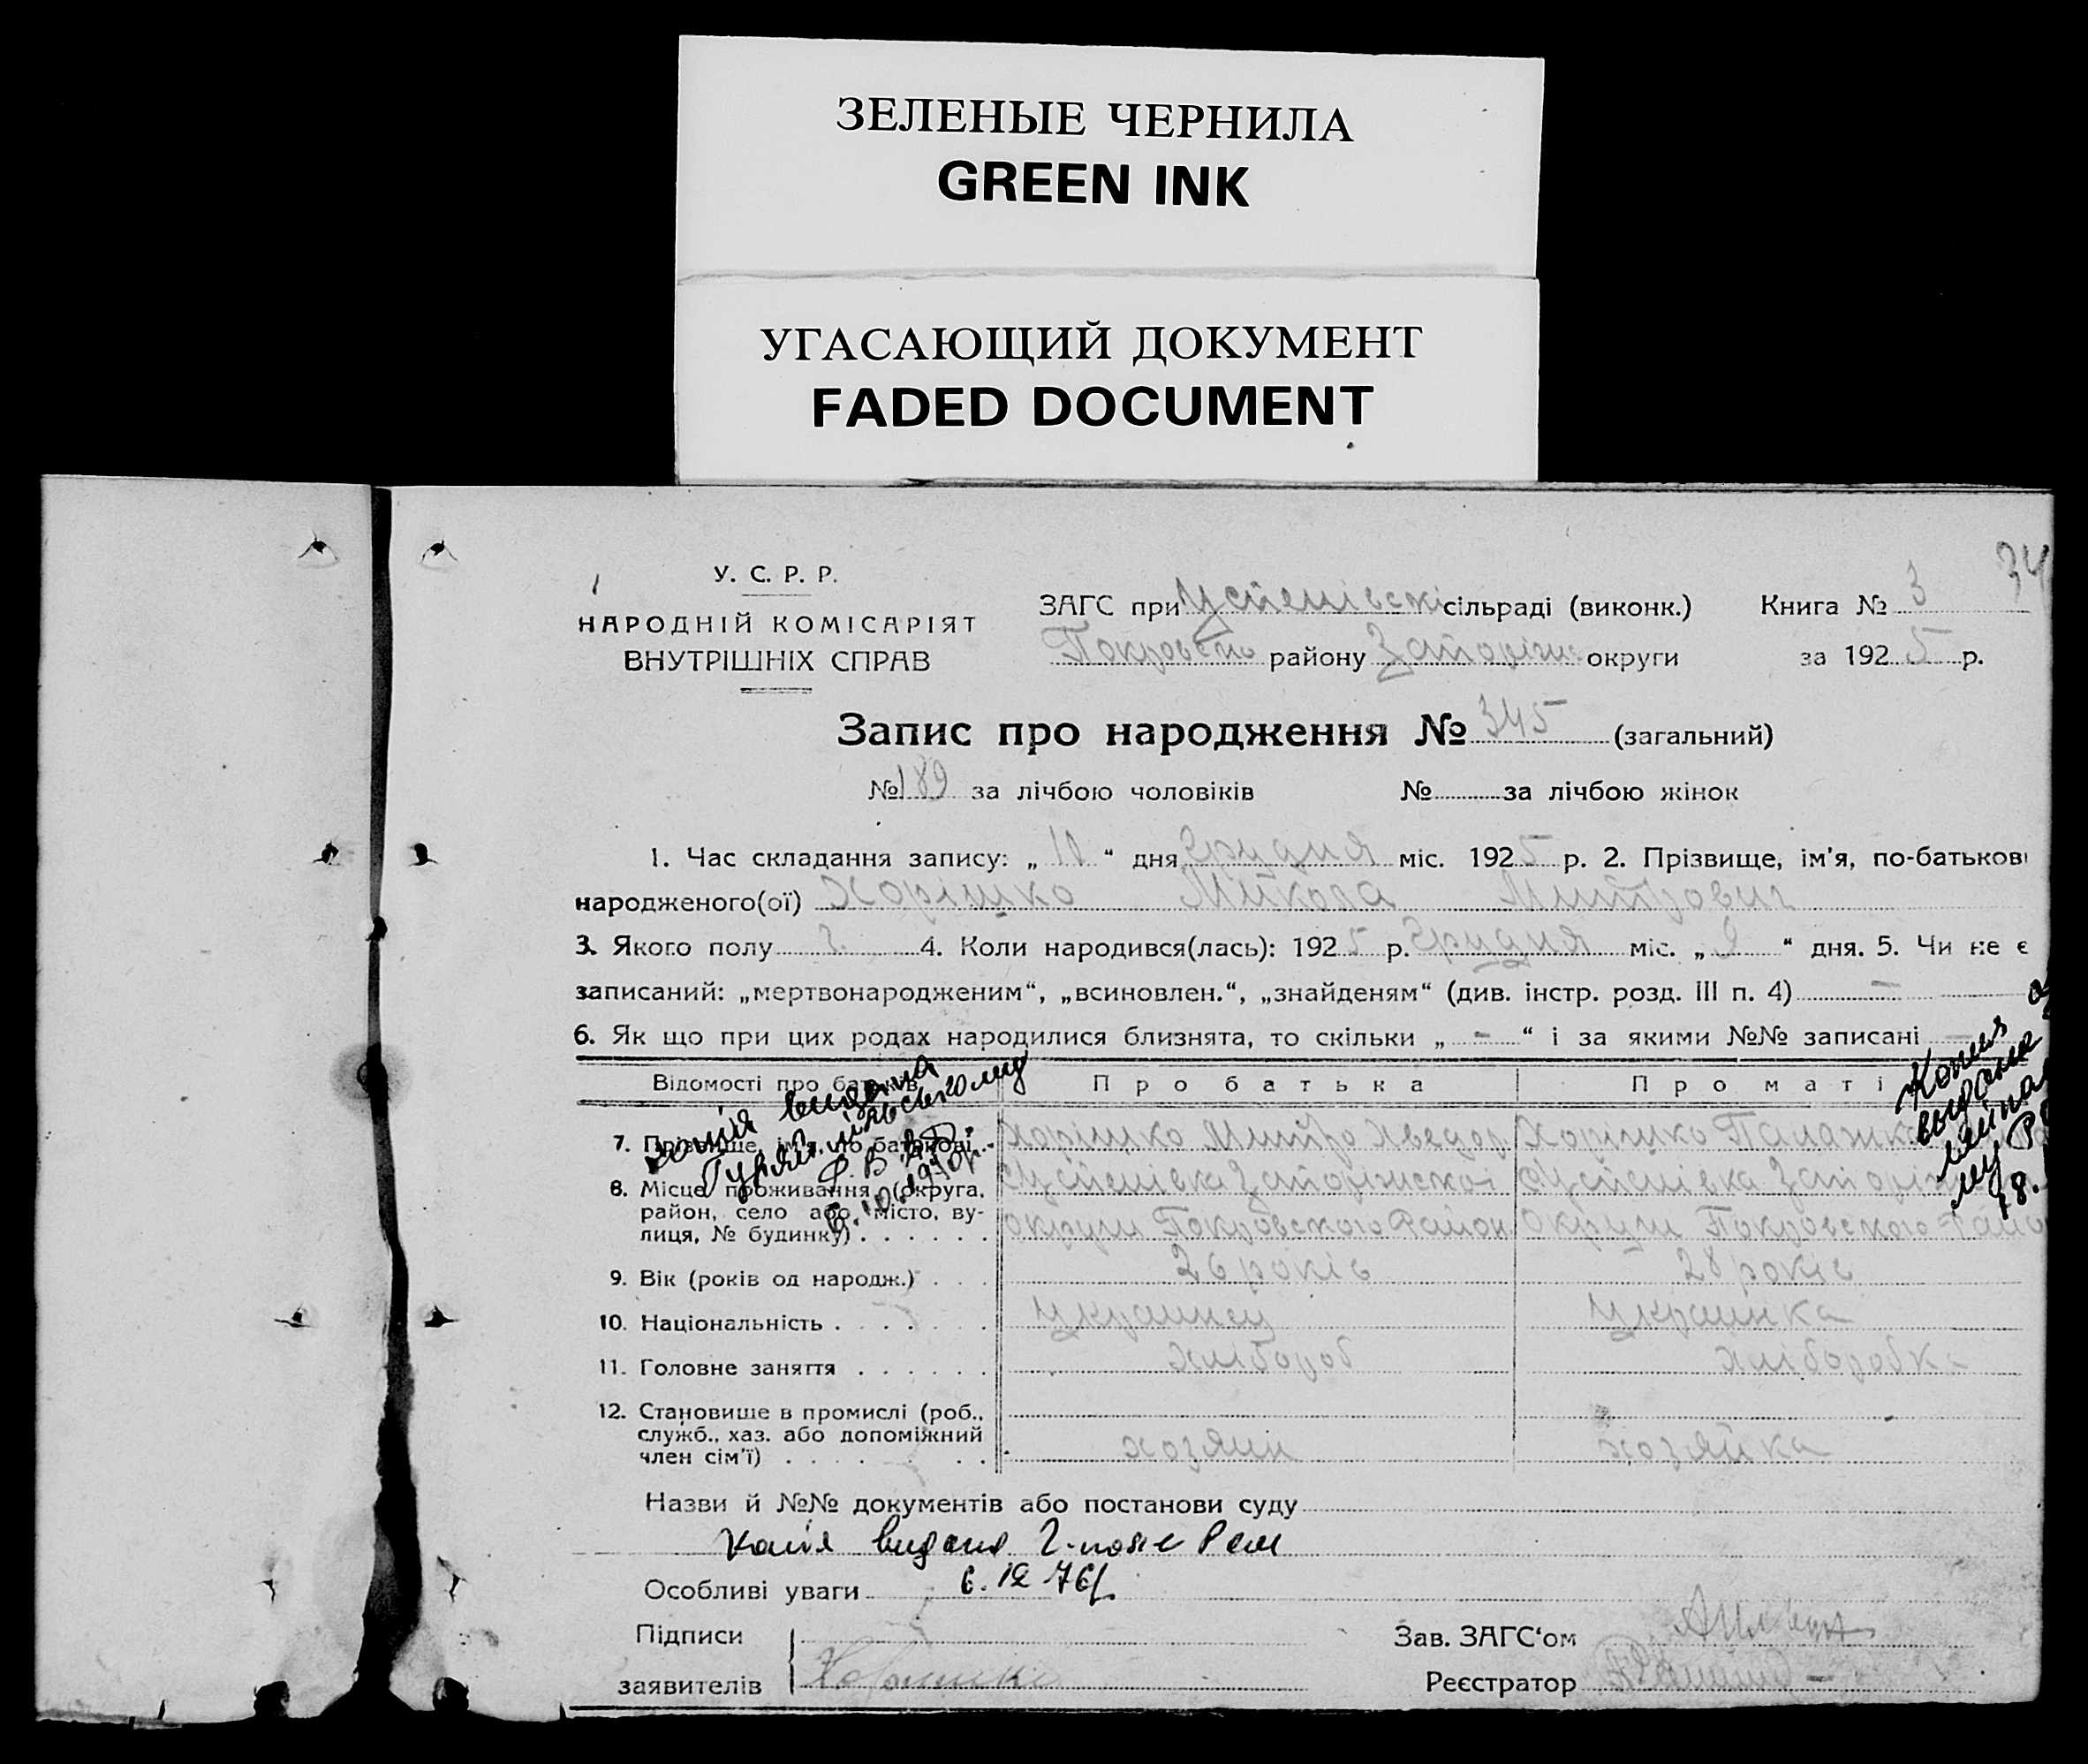 ЗЕЛЕНЫЕ ЧЕРНИЛА
GREEN INK
УГАСАЮЩИЙ ДОКУМЕНТ
FADED DOCUMENT
34
У. С. Р. Р.
НАРОДНІЙ КОМІСАРІЯТ
ВНУТРІШНІХ СПРАВ
ЗАГС при Успенівскі сільраді (виконк.) Книга № 3
Покровско району Запоріжс округи за 1925 р.
Запис про народження № 345 (загальний)
№ 189 за лічбою чоловіків № за лічбою жінок
1. Час складання запису: „ 10 “ дня Грудня міс. 1925 р. 2. Прізвище, ім'я, по-батькові
народженого(ої) Хорішко Микола Митрович
3. Якого полу ч. 4. Коли народився(лась): 1925 р. Грудня міс. „ 9 “ дня. 5. Чи не є
записаний: „мертвонародженим“, „всиновлен.“, „знайденям“ (див. інстр. розд. III п. 4) -
6. Як що при цих родах народилися близнята, то скільки „ - “ і за якими №№ записані -
Відомості про батьків Про батька Про маті
7. Прізвище, ім'я, по батькові Хорішко Митро Хведор. Хорішко Палажка
8. Місце проживання (округа, Успенівка Запоріжской Успенівка Запоріж
район, село або місто, ву-
лиця, № будинку) округи Покровского Район округи Покровского Райо
9. Вік (років од народж.) 26 років 28 років
10. Національність украинец украинка
11. Головне заняття хлібороб хліборобка
12. Становище в промислі (роб.,
служб., хаз. або допоміжний
член сім'ї) хозяин хозяйка
копія видана
Гуляй
Р.В.
6.10.1970р.
Копия
выдана
му Р
18.
Назви й №№ документів або постанови суду
Копія видана Г-поле
Особливі уваги 6.12 76р.
Підписи
заявителів Хорішко
Зав. ЗАГС‘ом
Реєстратор